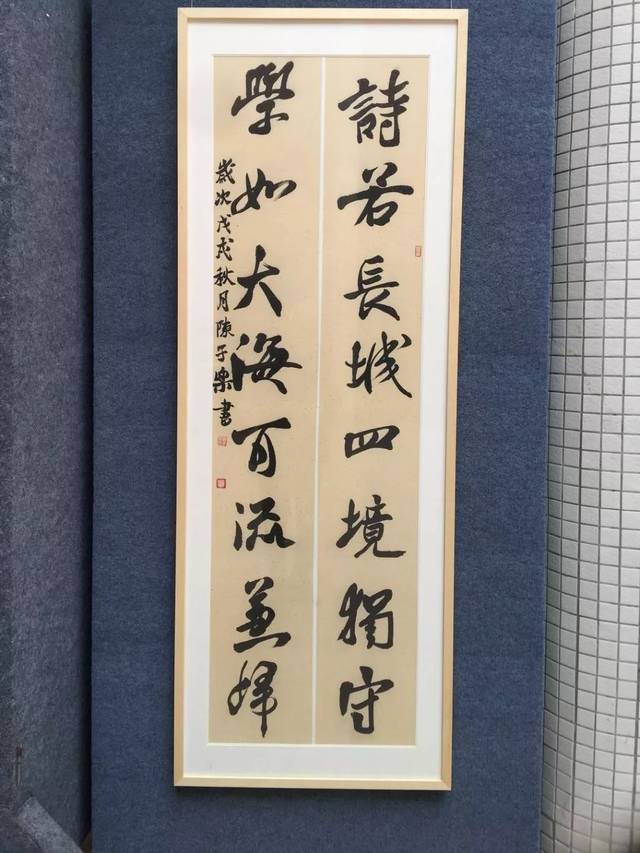 詩若長城四境獨守
學如大海百流兼歸
歲次戊戌秋月陳子樂書